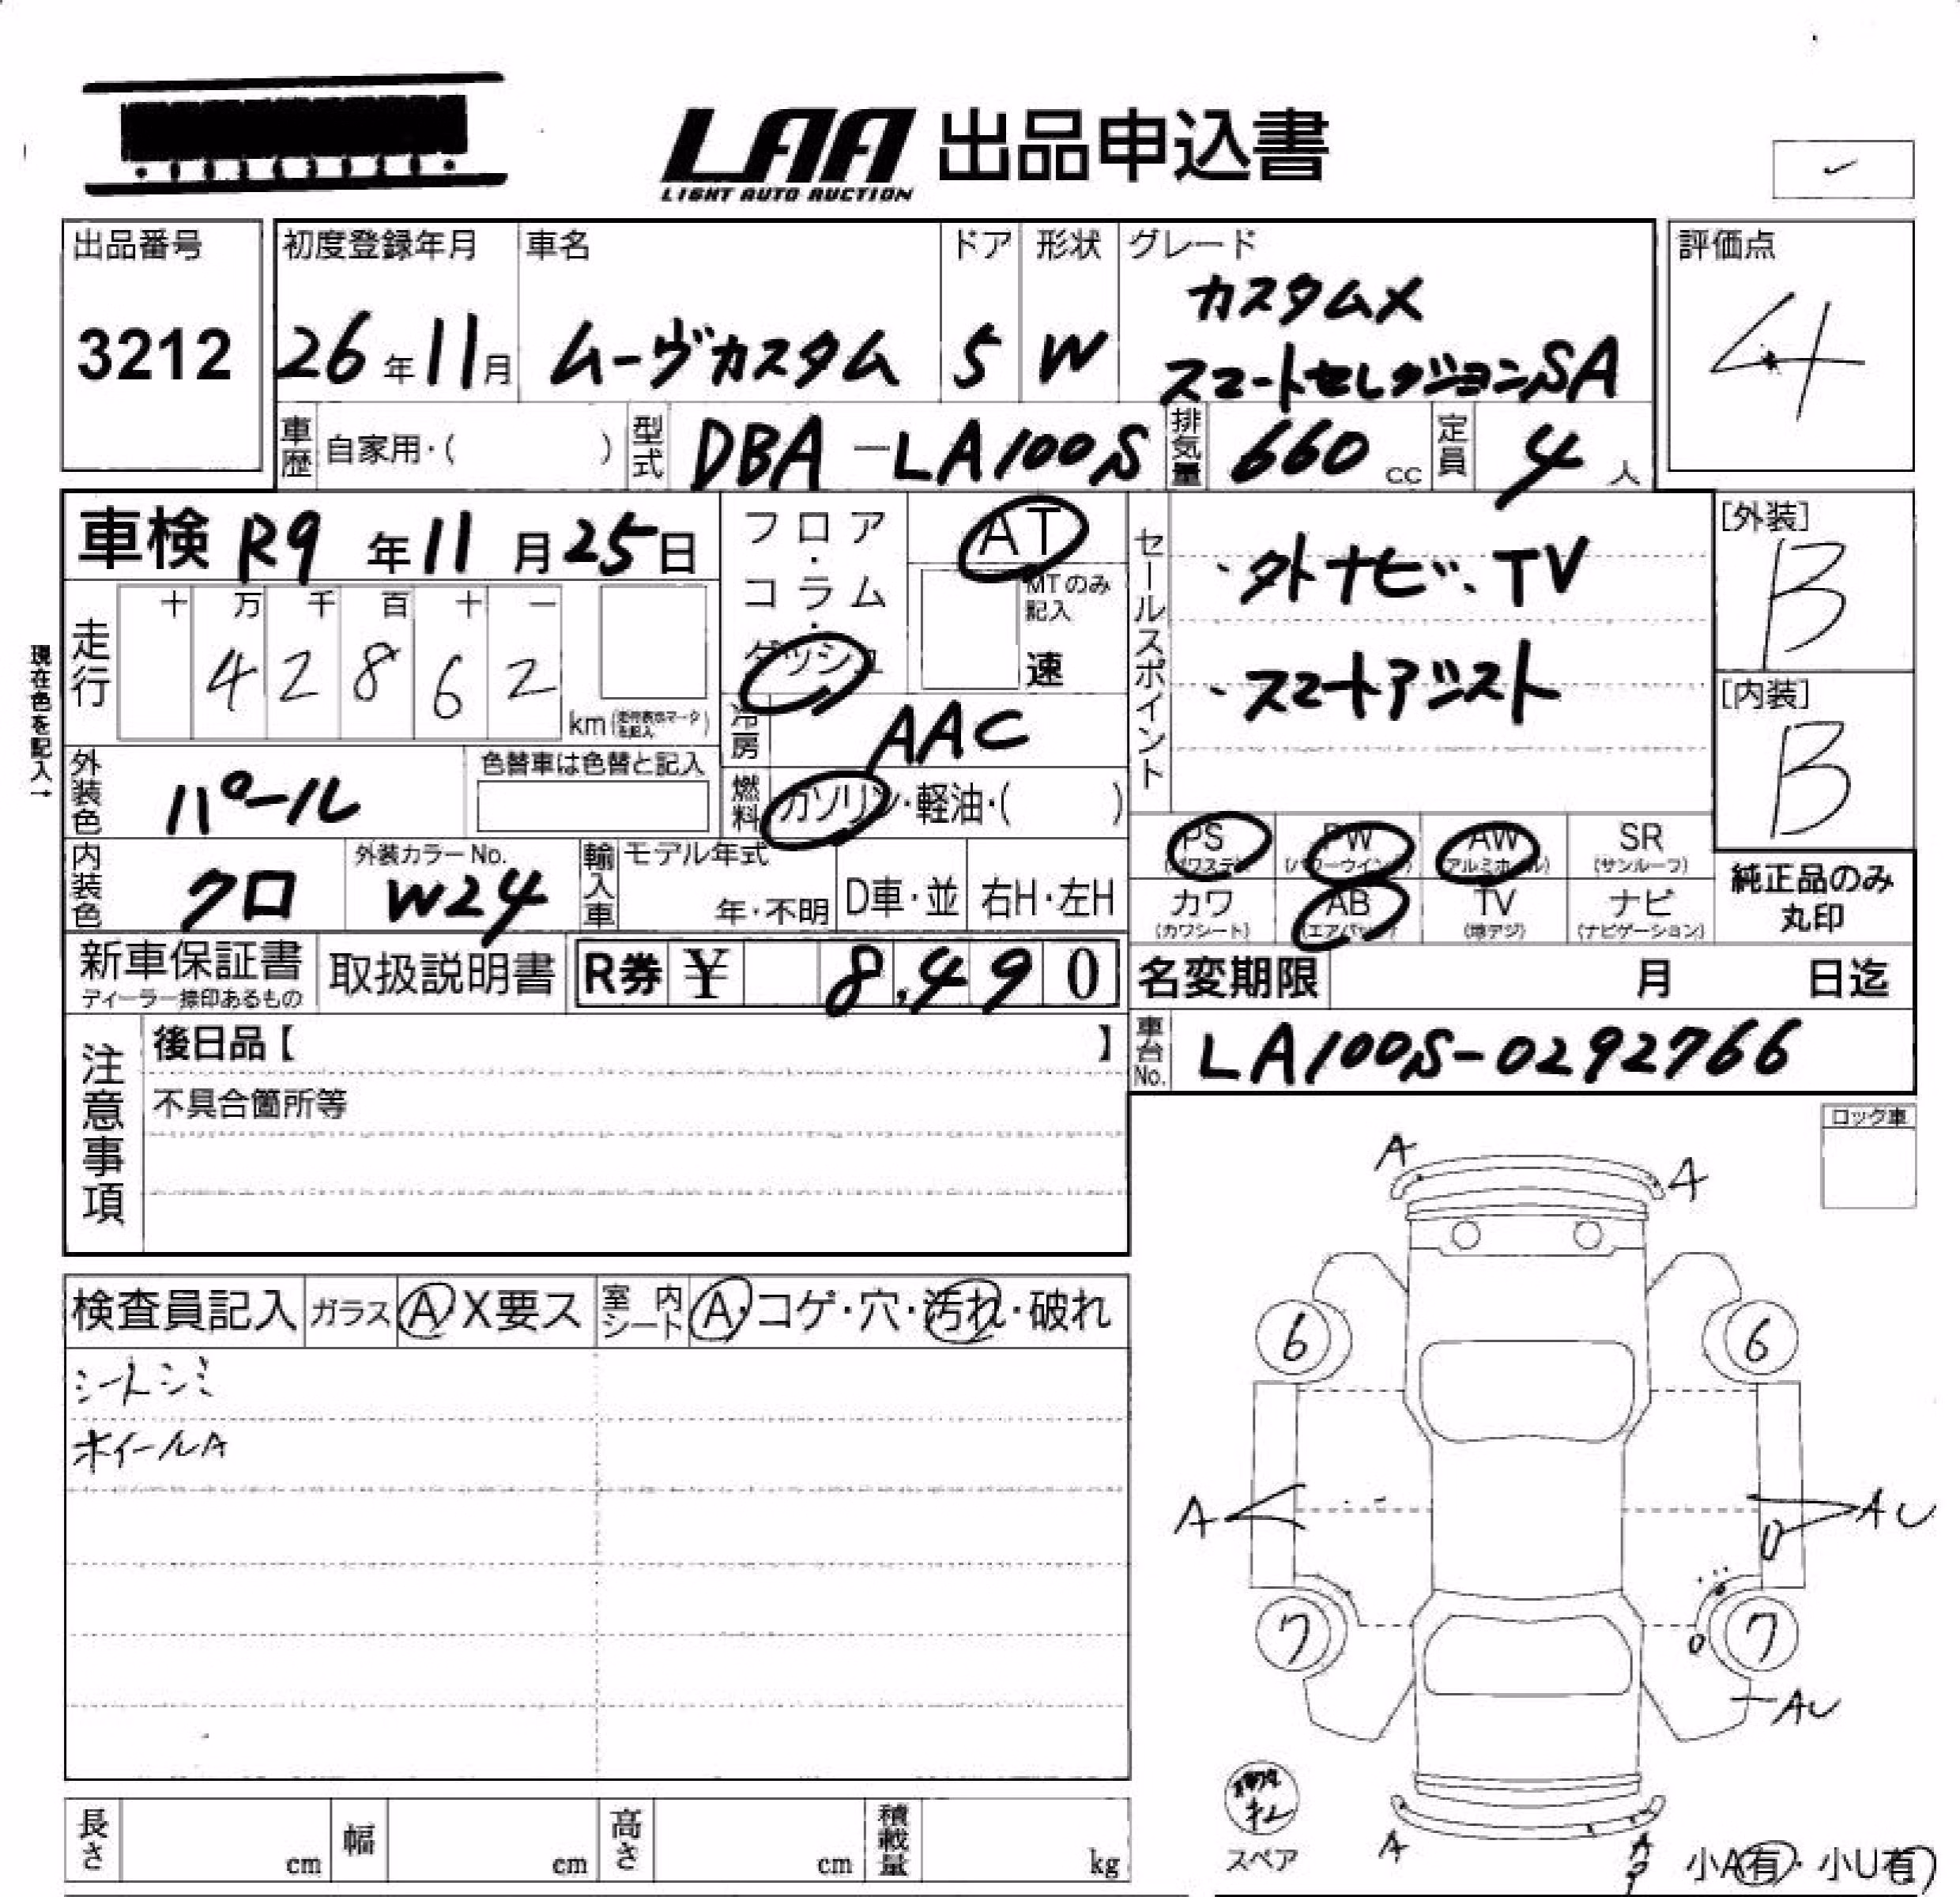 LAA 出品申込書
LIGHT AUTO AUCTION
出品番号 初度登録年月 車名 ドア 形状 グレード 評価点
カスタムX
3212 26年11月 ムーヴカスタム 5 W スマートセレクションSA 4
車歴 自家用・( ) 型式 DBA-LA100S 排気量 660 cc 定員 4人
車検 R9年11月25日
フロア・コラム・ダッシュ
AT
MTのみ記入
速
セールスポイント
・外ナビ、TV
・スマートアシスト
[外装]
B
[内装]
B
現在色を記入→
走行 十 万 千 百 十 一
4 2 8 6 2
km
冷房 AAC
外装色 パール 色替車は色替と記入
燃料 ガソリン・軽油・( )
PS PW AW SR
(パワステ) (パワーウインド) (アルミホイール) (サンルーフ)
カワ AB TV ナビ
(カワシート) (エアバッグ) (地デジ) (ナビゲーション)
純正品のみ
丸印
内装色 クロ 外装カラーNo. W24
輸入車 モデル年式 年・不明 D車・並 右H・左H
新車保証書 取扱説明書 R券 ¥ 8,490
ディーラー捺印あるもの
名変期限 月 日迄
車台No. LA100S-0292766
注意事項
後日品【 】
不具合箇所等
ロック車
検査員記入 ガラス A X要ス 室内シート A・コゲ・穴・汚れ・破れ
シートシミ
ホイールA
A A
6 6
A AU
7 7
AU
スペア
A A
小A有・小U有
長さ cm 幅 cm 高さ cm 積載量 kg